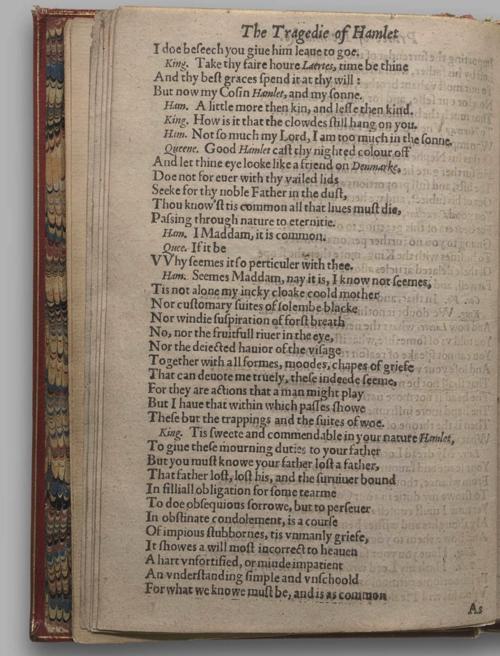 The Tragedie of Hamlet
I doe beſeech you giue him leaue to goe.
King. Take thy faire houre Laertes, time be thine
And thy beſt graces ſpend it at thy will :
But now my Coſin Hamlet, and my ſonne.
Ham. A little more then kin, and leſſe then kind.
King. How is it that the clowdes ſtill hang on you.
Ham. Not ſo much my Lord, I am too much in the ſonne.
Queene. Good Hamlet caſt thy nighted colour off
And let thine eye looke like a friend on Denmarke,
Doe not for euer with thy vailed lids
Seeke for thy noble Father in the duſt,
Thou know'ſt tis common all that liues muſt die,
Paſſing through nature to eternitie.
Ham. I Maddam, it is common.
Quee. If it be
VVhy ſeemes it ſo perticuler with thee.
Ham. Seemes Maddam, nay it is, I know not ſeemes,
Tis not alone my incky cloake coold mother
Nor cuſtomary ſuites of ſolembe blacke
Nor windie ſuſpiration of forſt breath
No, nor the fruitfull riuer in the eye,
Nor the deiected hauior of the viſage
Together with all formes, moodes, chapes of griefe
That can deuote me truely, theſe indeede ſeeme,
For they are actions that a man might play
But I haue that within which paſſes ſhowe
Theſe but the trappings and the ſuites of woe.
King. Tis ſweete and commendable in your nature Hamlet,
To giue theſe mourning duties to your father
But you muſt knowe your father loſt a father,
That father loſt, loſt his, and the ſuruiuer bound
In filliall obligation for ſome tearme
To doe obſequious ſorrowe, but to perſeuer
In obſtinate condolement, is a courſe
Of impious ſtubbornes, tis vnmanly griefe,
It ſhowes a will moſt incorrect to heauen
A hart vnfortified, or minde impatient
An vnderſtanding ſimple and vnſchoold
For what we knowe muſt be, and is as common
As